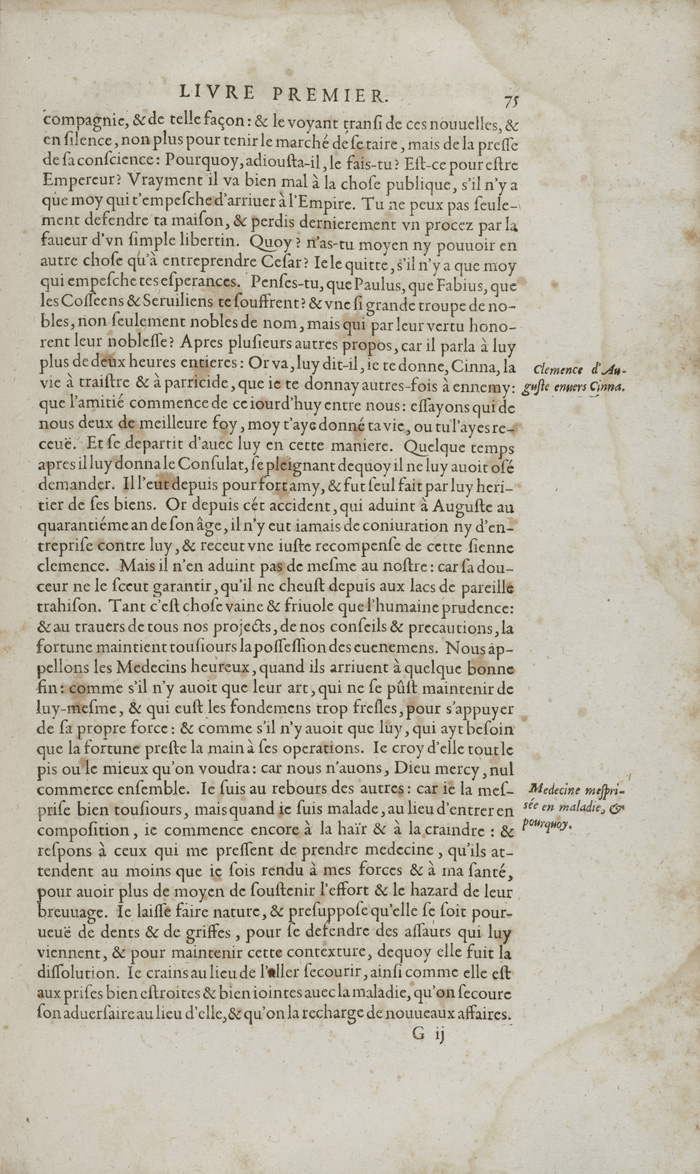 LIVRE PREMIER. 75
compagnie, & de telle façon: & le voyant tranſi de ces nouuelles, &
en ſilence, non plus pour tenir le marché de ſe taire, mais de la preſſe
de ſa conſcience: Pourquoy, adiouſta-il, le fais-tu? Eſt-ce pour eſtre
Empereur? Vrayment il va bien mal à la choſe publique, s'il n'y a
que moy qui t'empeſche d'arriuer à l'Empire. Tu ne peux pas ſeule-
ment defendre ta maiſon, & perdis dernierement vn procez par la
faueur d'vn ſimple libertin. Quoy? n'as-tu moyen ny pouuoir en
autre choſe qu'à entreprendre Ceſar? Ie le quitte, s'il n'y a que moy
qui empeſche tes eſperances. Penſes-tu, que Paulus, que Fabius, que
les Coſſeens & Seruiliens te ſouffrent? & vne ſi grande troupe de no-
bles, non ſeulement nobles de nom, mais qui par leur vertu hono-
rent leur nobleſſe? Apres pluſieurs autres propos, car il parla à luy
plus de deux heures entieres: Or va, luy dit-il, ie te donne, Cinna, la
vie à traiſtre & à parricide, que ie te donnay autres-fois à ennemy:
que l'amitié commence de ce iourd'huy entre nous: eſſayons qui de
nous deux de meilleure foy, moy t'aye donné ta vie, ou tu l'ayes re-
ceuë. Et ſe departit d'auec luy en cette maniere. Quelque temps
apres il luy donna le Conſulat, ſe pleignant dequoy il ne luy auoit oſé
demander. Il l'eut depuis pour fort amy, & fut ſeul fait par luy heri-
tier de ſes biens. Or depuis cét accident, qui aduint à Auguſte au
quarantiéme an de ſon âge, il n'y eut iamais de coniuration ny d'en-
trepriſe contre luy, & receut vne iuſte recompenſe de cette ſienne
clemence. Mais il n'en aduint pas de meſme au noſtre: car ſa dou-
ceur ne le ſceut garantir, qu'il ne cheuſt depuis aux lacs de pareille
trahiſon. Tant c'eſt choſe vaine & friuole que l'humaine prudence:
& au trauers de tous nos projects, de nos conſeils & precautions, la
fortune maintient touſiours la poſſeſſion des euenemens. Nous ap-
pellons les Medecins heureux, quand ils arriuent à quelque bonne
fin: comme s'il n'y auoit que leur art, qui ne ſe pûſt maintenir de
luy-meſme, & qui euſt les fondemens trop freſles, pour s'appuyer
de ſa propre force: & comme s'il n'y auoit que luy, qui ayt beſoin
que la fortune preſte la main à ſes operations. Ie croy d'elle tout le
pis ou le mieux qu'on voudra: car nous n'auons, Dieu mercy, nul
commerce enſemble. Ie ſuis au rebours des autres: car ie la meſ-
priſe bien touſiours, mais quand ie ſuis malade, au lieu d'entrer en
compoſition, ie commence encore à la haïr & à la craindre: &
reſpons à ceux qui me preſſent de prendre medecine, qu'ils at-
tendent au moins que ie ſois rendu à mes forces & à ma ſanté,
pour auoir plus de moyen de ſouſtenir l'effort & le hazard de leur
breuuage. Ie laiſſe faire nature, & preſuppoſe qu'elle ſe ſoit pour-
ueuë de dents & de griffes, pour ſe defendre des aſſauts qui luy
viennent, & pour maintenir cette contexture, dequoy elle fuit la
diſſolution. Ie crains au lieu de l'aller ſecourir, ainſi comme elle eſt
aux priſes bien eſtroites & bien iointes auec la maladie, qu'on ſecoure
ſon aduerſaire au lieu d'elle, & qu'on la recharge de nouueaux affaires.
G ij
Clemence d'Au-
guſte enuers Cinna.
Medecine meſpri-
sée en maladie, &
pourquoy.